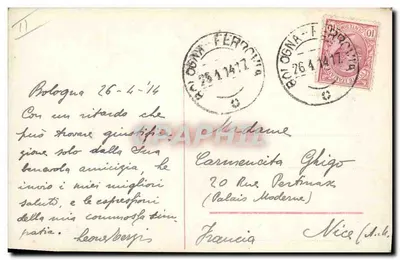 11
BOLOGNA - FERROVIA
26.4.14.17
BOLOGNA - FERROVIA
26.4.14.17
10
Bologna 26-4-'14
Con un ritardo che
può trovare giustifi-
zione solo dalla Sua
benevola amicizia, Le
invio i miei migliori
saluti, e le espressioni
della mia commossa sim-
patia.
Madame
Carmencita Ghigo
20 Rue Pertinax
(Palais Moderne)
Nice (A.M.)
Francia